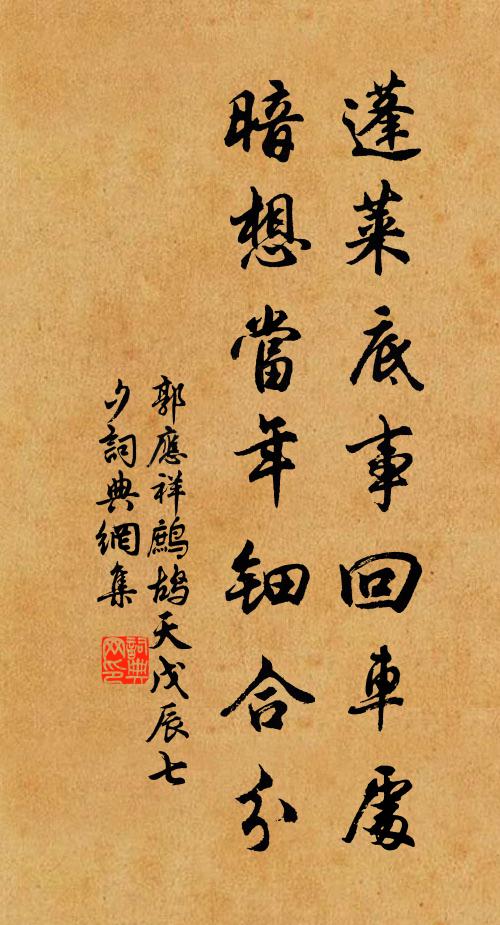 蓬萊底事回車處
暗想當年鈿合分
郭應祥鷓鴣天戊辰七
夕詞典網集
詞典
网印